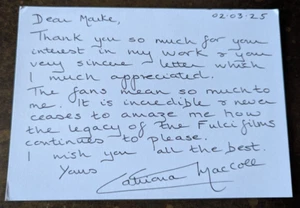 Dear Marke, 02.03.25
Thank you so much for your
interest in my work & your
very sincere letter which
I much appreciated.
The fans mean so much to
me. It is incredible & never
ceases to amaze me how
the legacy of the Fulci films
continues to please.
I wish you all the best.
Yours Catriona MacColl